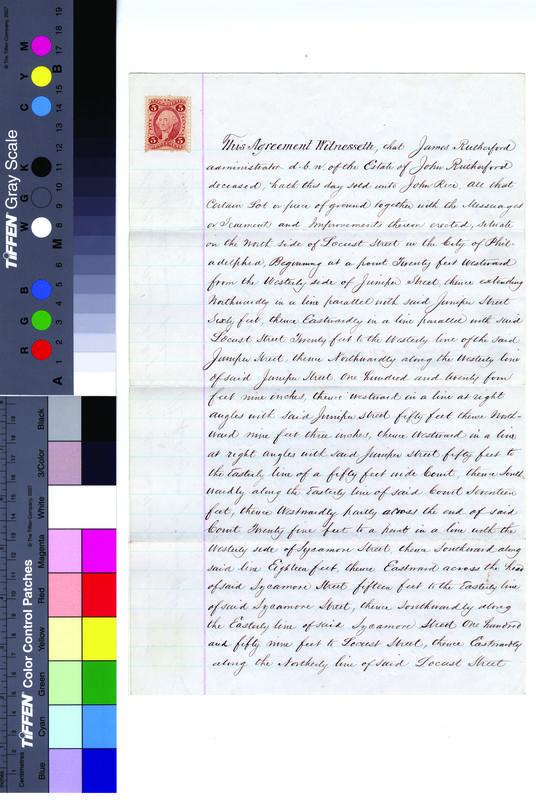 This Agreement Witnesseth, that James Rutherford
administrator d. b. n. of the Estate of John Rutherford
deceased, hath this day sold unto John Rice, all that
Certain Lot or piece of ground together with the Messuages
or Tenement and Improvements thereon erected, situate
on the North side of Locust Street in the City of Phil-
adelphia, Beginning at a point Twenty feet Westward
from the Westerly side of Juniper Street, thence extending
Northwardly in a line parallel with said Juniper Street
Sixty feet, thence Eastwardly in a line parallel with said
Locust Street Twenty feet to the Westerly line of the said
Juniper Street, thence Northwardly along the Westerly line
of said Juniper Street One hundred and twenty four
feet nine inches, thence westward in a line at right
angles with said Juniper street fifty feet thence North-
ward nine feet three inches, thence Westward in a line
at right angles with said Juniper Street fifty feet to
the Easterly line of a fifty feet wide Court, thence South-
wardly along the Easterly line of said Court Seventeen
feet, thence Westwardly partly across the end of said
Court Twenty five feet to a point in a line with the
Westerly side of Sycamore Street, thence Southward along
said line Eighteen feet, thence Eastward across the head
of said Sycamore Street fifteen feet to the Easterly line
of said Sycamore Street, thence Southwardly along
the Easterly line of said Sycamore Street One hundred
and fifty nine feet to Locust Street, thence Eastwardly
along the Northerly line of said Locust Street
5 5
5 5
TIFFEN Gray Scale
© The Tiffen Company, 2007
R G B W G K C Y M
A 1 2 3 4 5 6 M 8 9 10 11 12 13 14 15 B 17 18 19
TIFFEN Color Control Patches
© The Tiffen Company, 2007
Centimetres
Inches
Blue Cyan Green Yellow Red Magenta White 3/Color Black